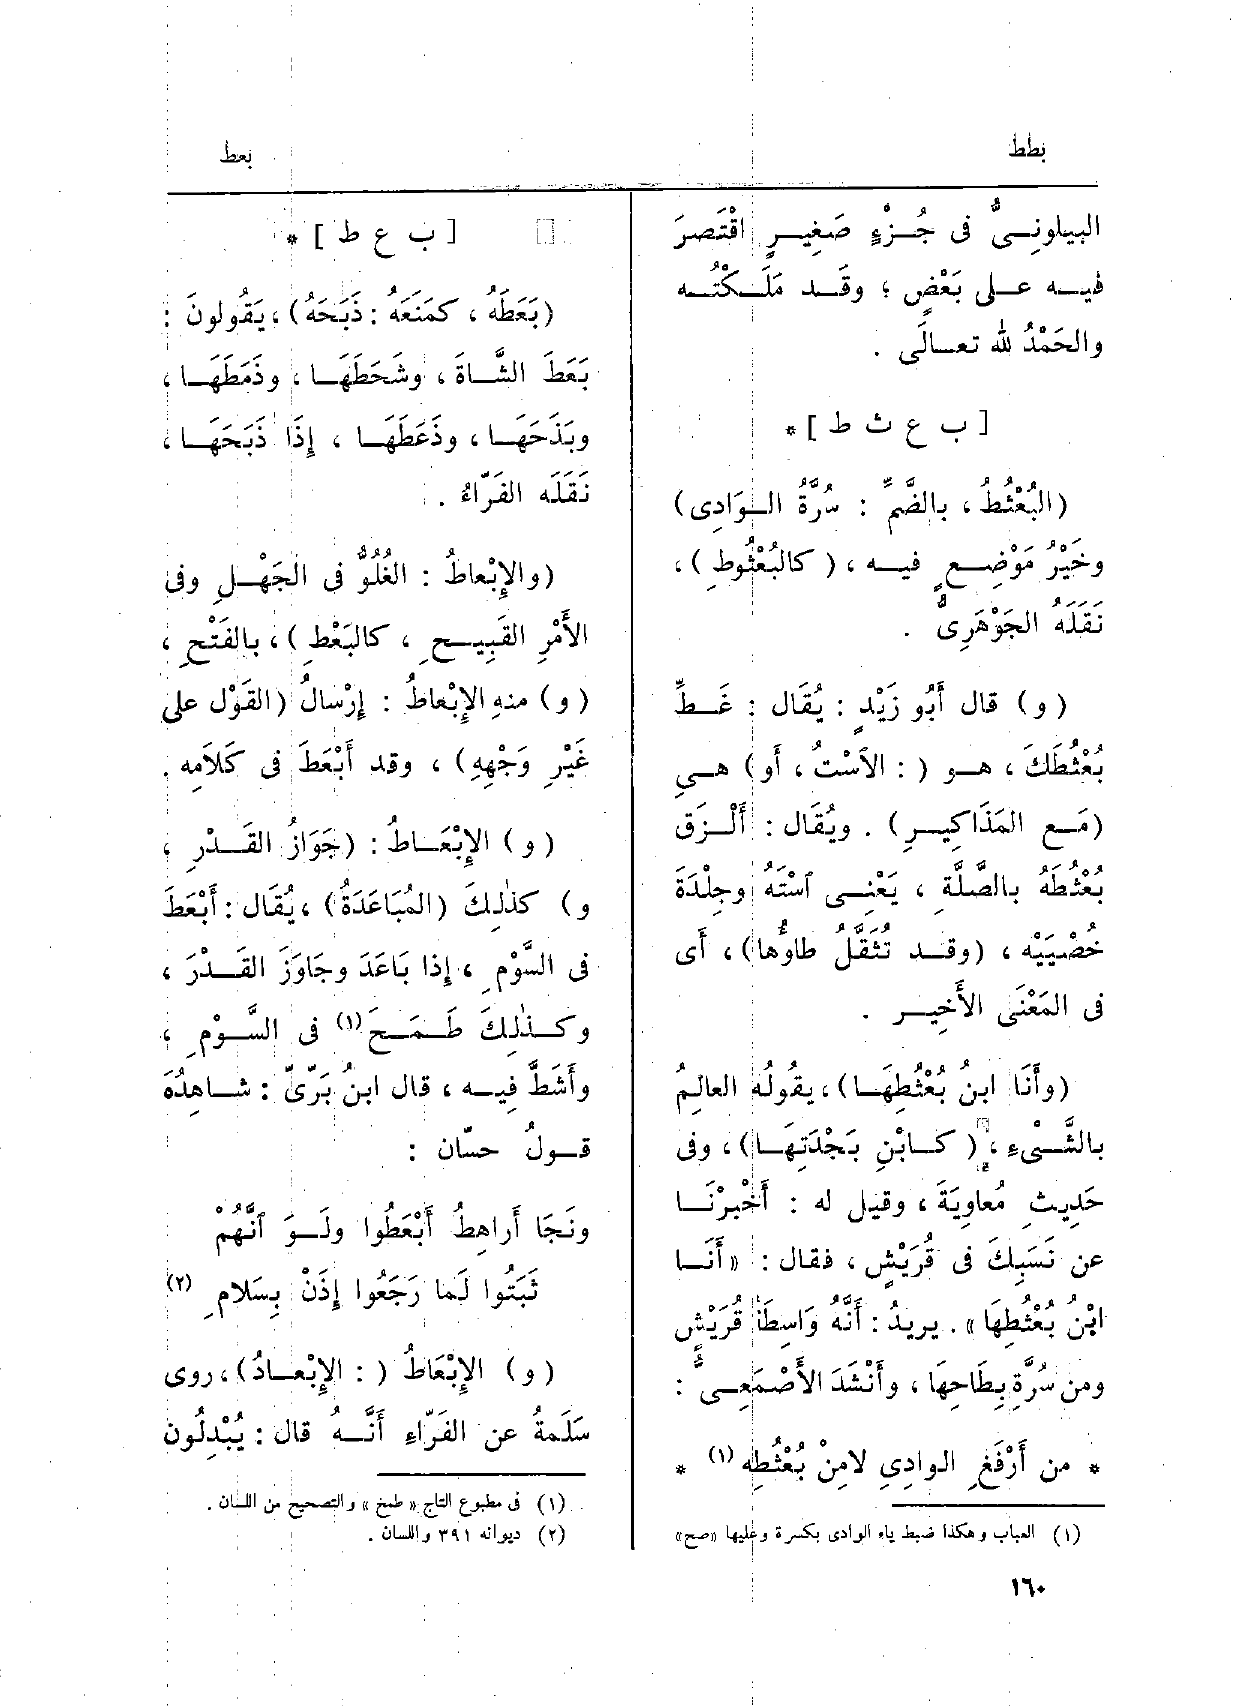 بطط
بعط
البيلونِىُّ فى جُزْءٍ صَغِيرٍ اقْتَصرَ
فيه على بَعْضٍ ؛ وقَد مَلَكْتُه
والحَمْدُ لله تعالَى .
[ ب ع ث ط ] *
(البُعْثُطُ ، بالضَّمِّ : سُرَّةُ الوَادِى)
وخَيْرُ مَوْضِعٍ فيه ، ( كالبُعْثُوطِ ) ،
نَقَلَهُ الجَوْهَرِىُّ .
( و ) قال أَبُو زَيْدٍ : يُقَال : غَطِّ
بُعْثُطَكَ ، هو ( : الاَسْتُ ، أَو ) هى
(مَع المَذَاكِيرِ) . ويُقَال : أَلْزَق
بُعْثُطَهُ بالصَّلَّةِ ، يَعْنِى ٱسْتَهُ وجِلْدَةَ
خُصْيَيْه ، (وقد تُثَقَّلُ طاوُها) ، أَى
فى المَعْنَى الأَخِيرِ .
(وأَنَا ابنُ بُعْثُطِهَا) ، يقُولُه العالِمُ
بالشَّىْءِ ، ( كابْنِ بَجْدَتِهَا ) ، وفى
حَدِيثِ مُعاوِيَةَ ، وقيل له : أَخْبِرْنَا
عن نَسَبِكَ فى قُرَيْشٍ ، فقال : «أَنَا
ابْنُ بُعْثُطِهَا» . يريدُ : أَنَّهُ وَاسِطَةُ قُرَيْشٍ
ومن سُرَّةِ بِطَاحِهَا ، وأَنْشَدَ الأَصْمَعِىُّ :
* من أَرْفَغِ الوادِىِ لامِنْ بُعْثُطِه (١) *
(١) العباب وهكذا ضبط ياء الوادى بكسرة وعليها «صح»
١٦٠
[ ب ع ط ] *
(بَعَطَهُ ، كمَنَعَهُ : ذَبَحَهُ) ، يَقُولونَ :
بَعَطَ الشَّاةَ ، وشَحَطَهَا ، وذَمَطَهَا ،
وبَذَحَهَا ، وذَعَطَهَا ، إِذَا ذَبَحَهَا ،
نَقَلَه الفَرّاءُ .
(والإِبْعاطُ : الغُلُوُّ فى الجَهْلِ وفى
الأَمْرِ القَبِيحِ ، كالبَعْطِ ) ، بالفَتْحِ ،
( و ) منهِ الإِبْعاطُ : إِرْسالُ (القَوْل على
غَيْرِ وَجْهِهِ) ، وقد أَبْعَطَ فى كَلَامِه .
( و ) الإِبْعَاطُ : (جَوَازُ القَدْرِ ،
و ) كذٰلِكَ (المُبَاعَدَةُ) ، يُقَال : أَبْعَطَ
فى السَّوْمِ ، إِذا بَاعَدَ وجَاوَزَ القَدْرَ ،
وكذٰلِكَ طَمَحَ (١) فى السَّوْمِ ،
وأَشَطَّ فِيه ، قال ابنُ بَرِّىّ : شاهِدُهُ
قولُ حسّان :
ونَجَا أَراهِطُ أَبْعَطُوا ولَوَ ٱنَّهُمْ
ثَبَتُوا لَما رَجَعُوا إِذَنْ بِسَلامِ (٢)
( و ) الإِبْعَاطُ ( : الإِبْعادُ) ، روى
سَلَمةُ عن الفَرّاءِ أَنَّهُ قال : يُبْدِلُون
(١) فى مطبوع التاج «طمخ» والتصحيح من اللسان .
(٢) ديوانه ٣٩١ واللسان .